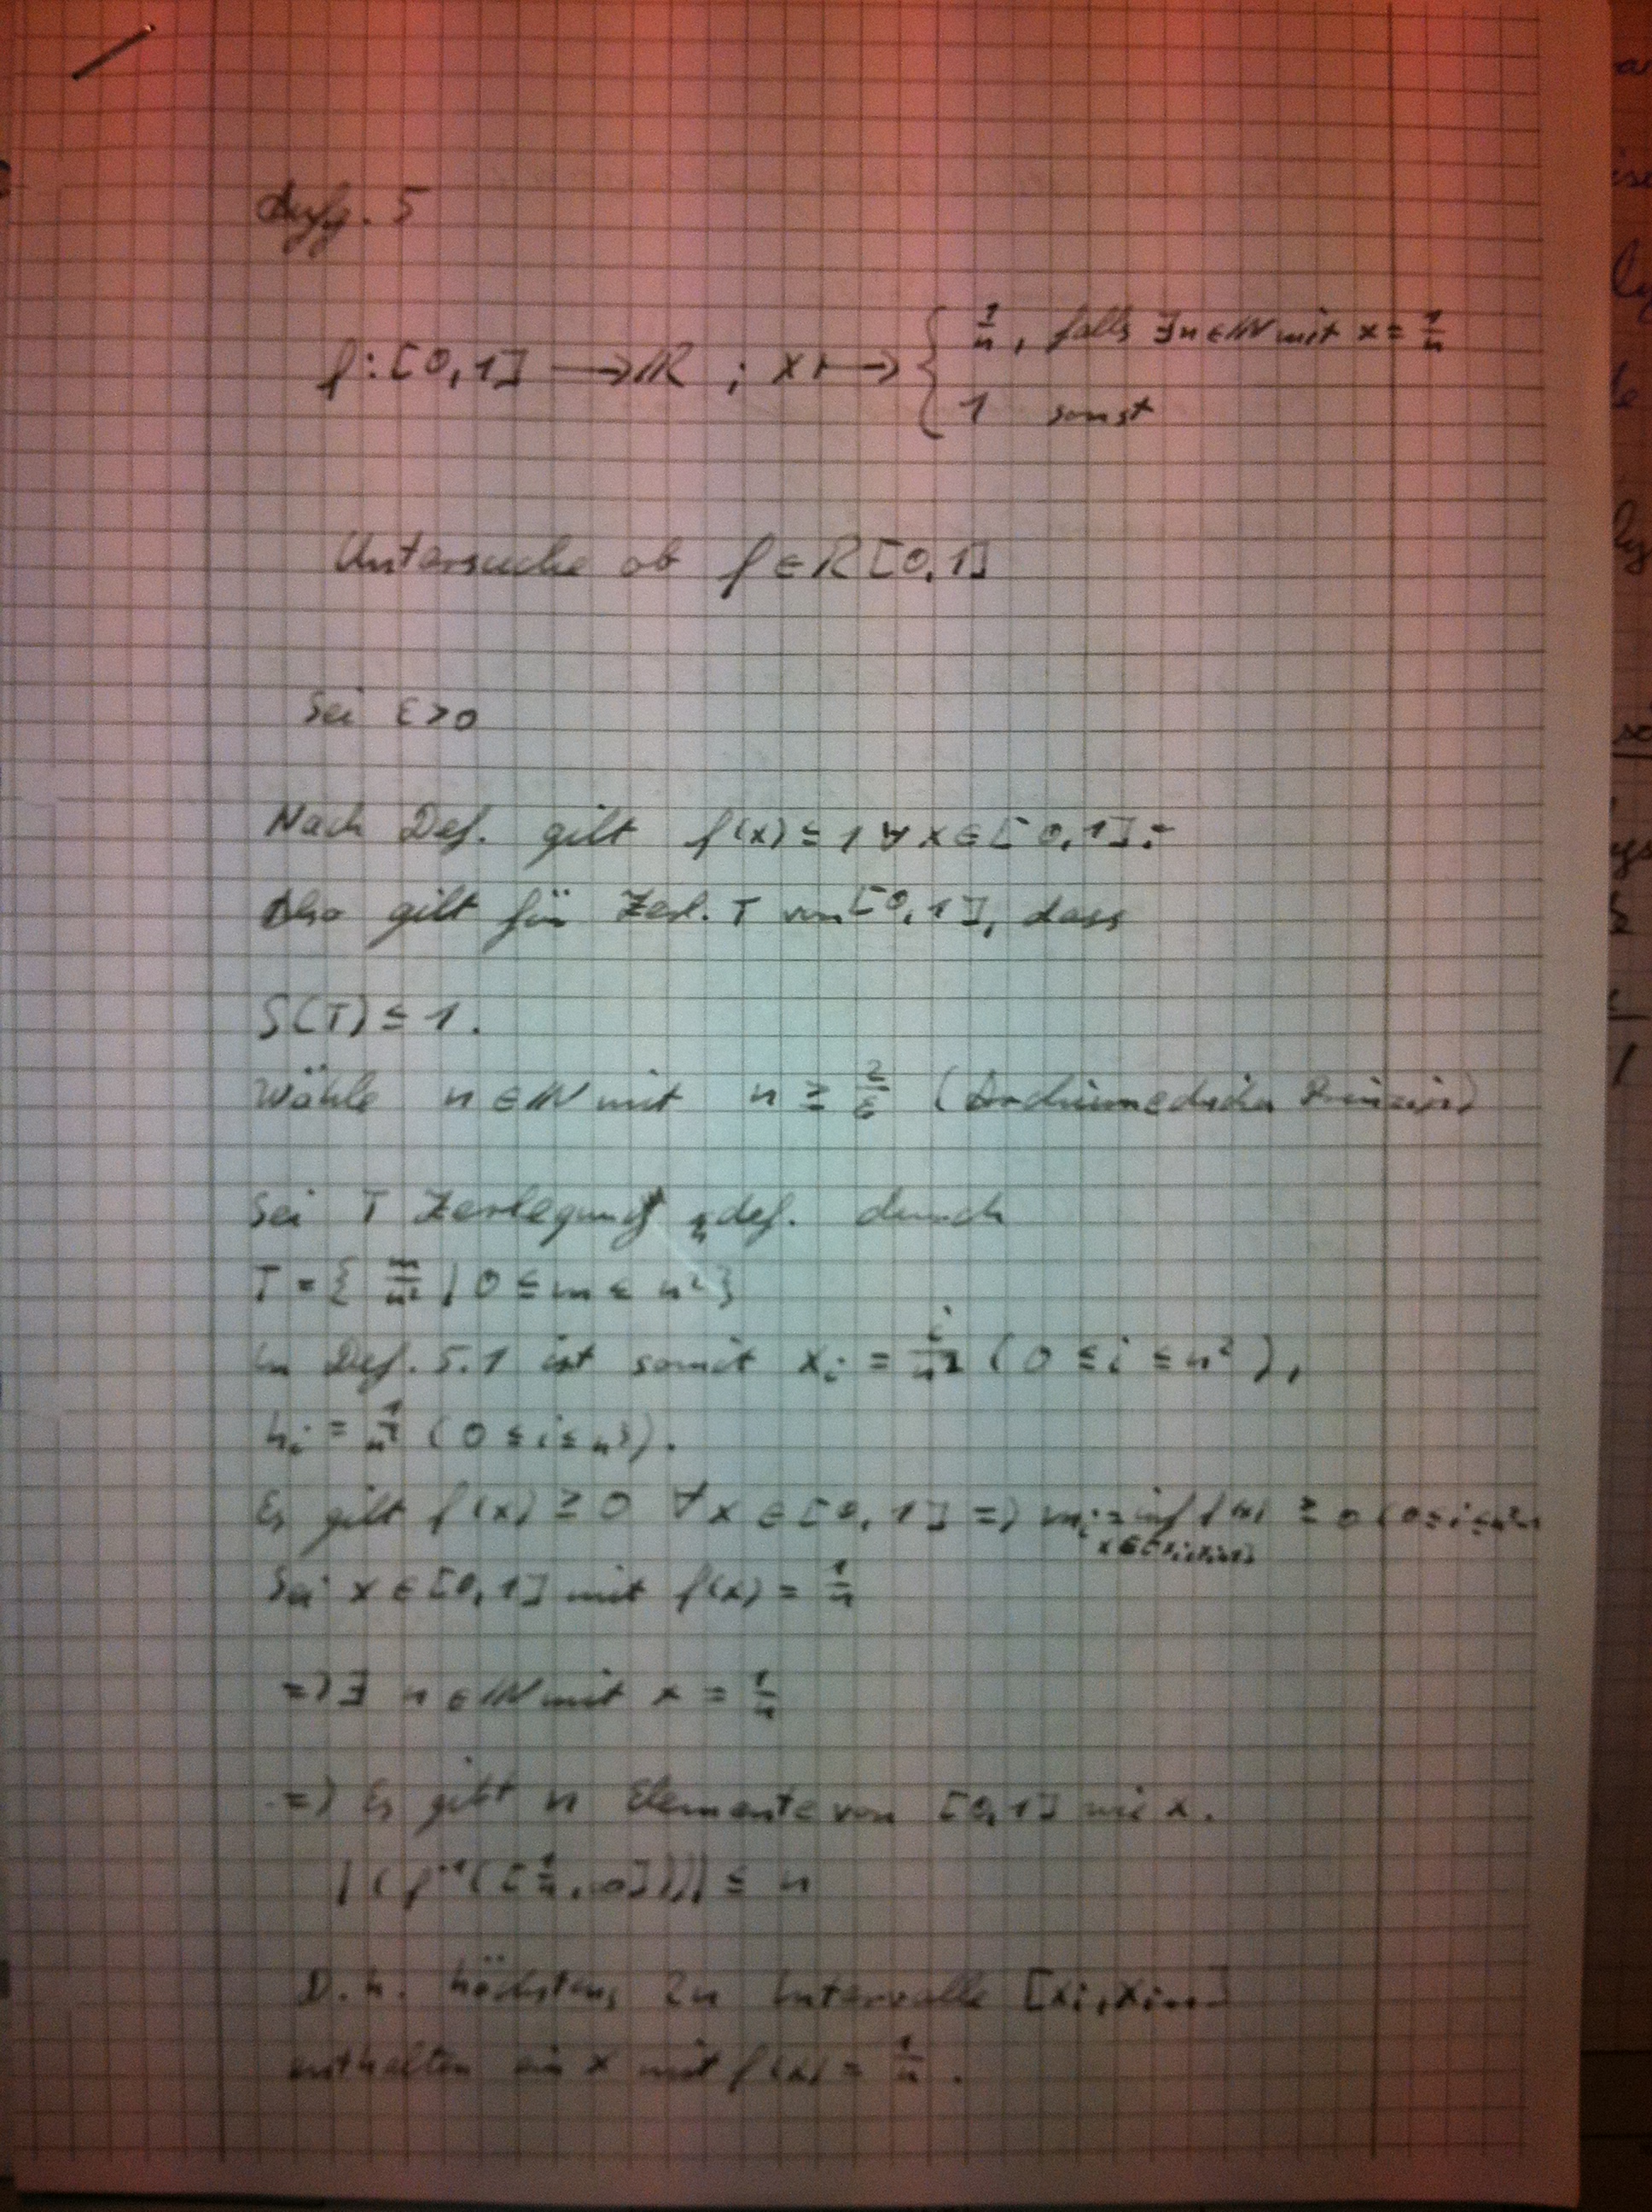 Aufg. 5
f: [0,1] → ℝ ; x ↦ { 1/n, falls ∃ n ∈ ℕ mit x = 1/n
1 sonst
Untersuche ob f ∈ R[0,1]
Sei ε > 0
Nach Def. gilt f(x) ≤ 1 ∀ x ∈ [0,1].
Also gilt für Zerl. T von [0,1], dass
S(T) ≤ 1.
Wähle n ∈ ℕ mit n ≥ 2/ε (Archimedisches Prinzip)
Sei T Zerlegung def. durch
T = { m/n² | 0 ≤ m ≤ n² }
In Def. 5.1 ist somit x_i = i/n² (0 ≤ i ≤ n²),
h_i = 1/n² (0 ≤ i ≤ n²).
Es gilt f(x) ≥ 0 ∀ x ∈ [0,1] => m_i = inf f(x) ≥ 0 (0 ≤ i ≤ n²-1
x ∈ [x_i, x_i+1]
Sei x ∈ [0,1] mit f(x) = 1/n
=> ∃ n ∈ ℕ mit x = 1/n
=> Es gibt n Elemente von [0,1] wie x.
|(f⁻¹([1/n, ∞]))| ≤ n
D.h. höchstens 2n Intervalle [x_i, x_i+1]
enthalten ein x mit f(x) = 1/n.